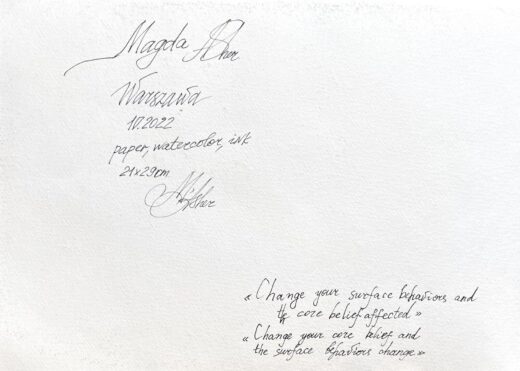 Magda Asher
Warszawa
10.2022
paper, watercolor, ink
21x29cm
MAsher
«Change your surface behaviors and
the core belief affected»
«Change your core belief and
the surface behaviors change»